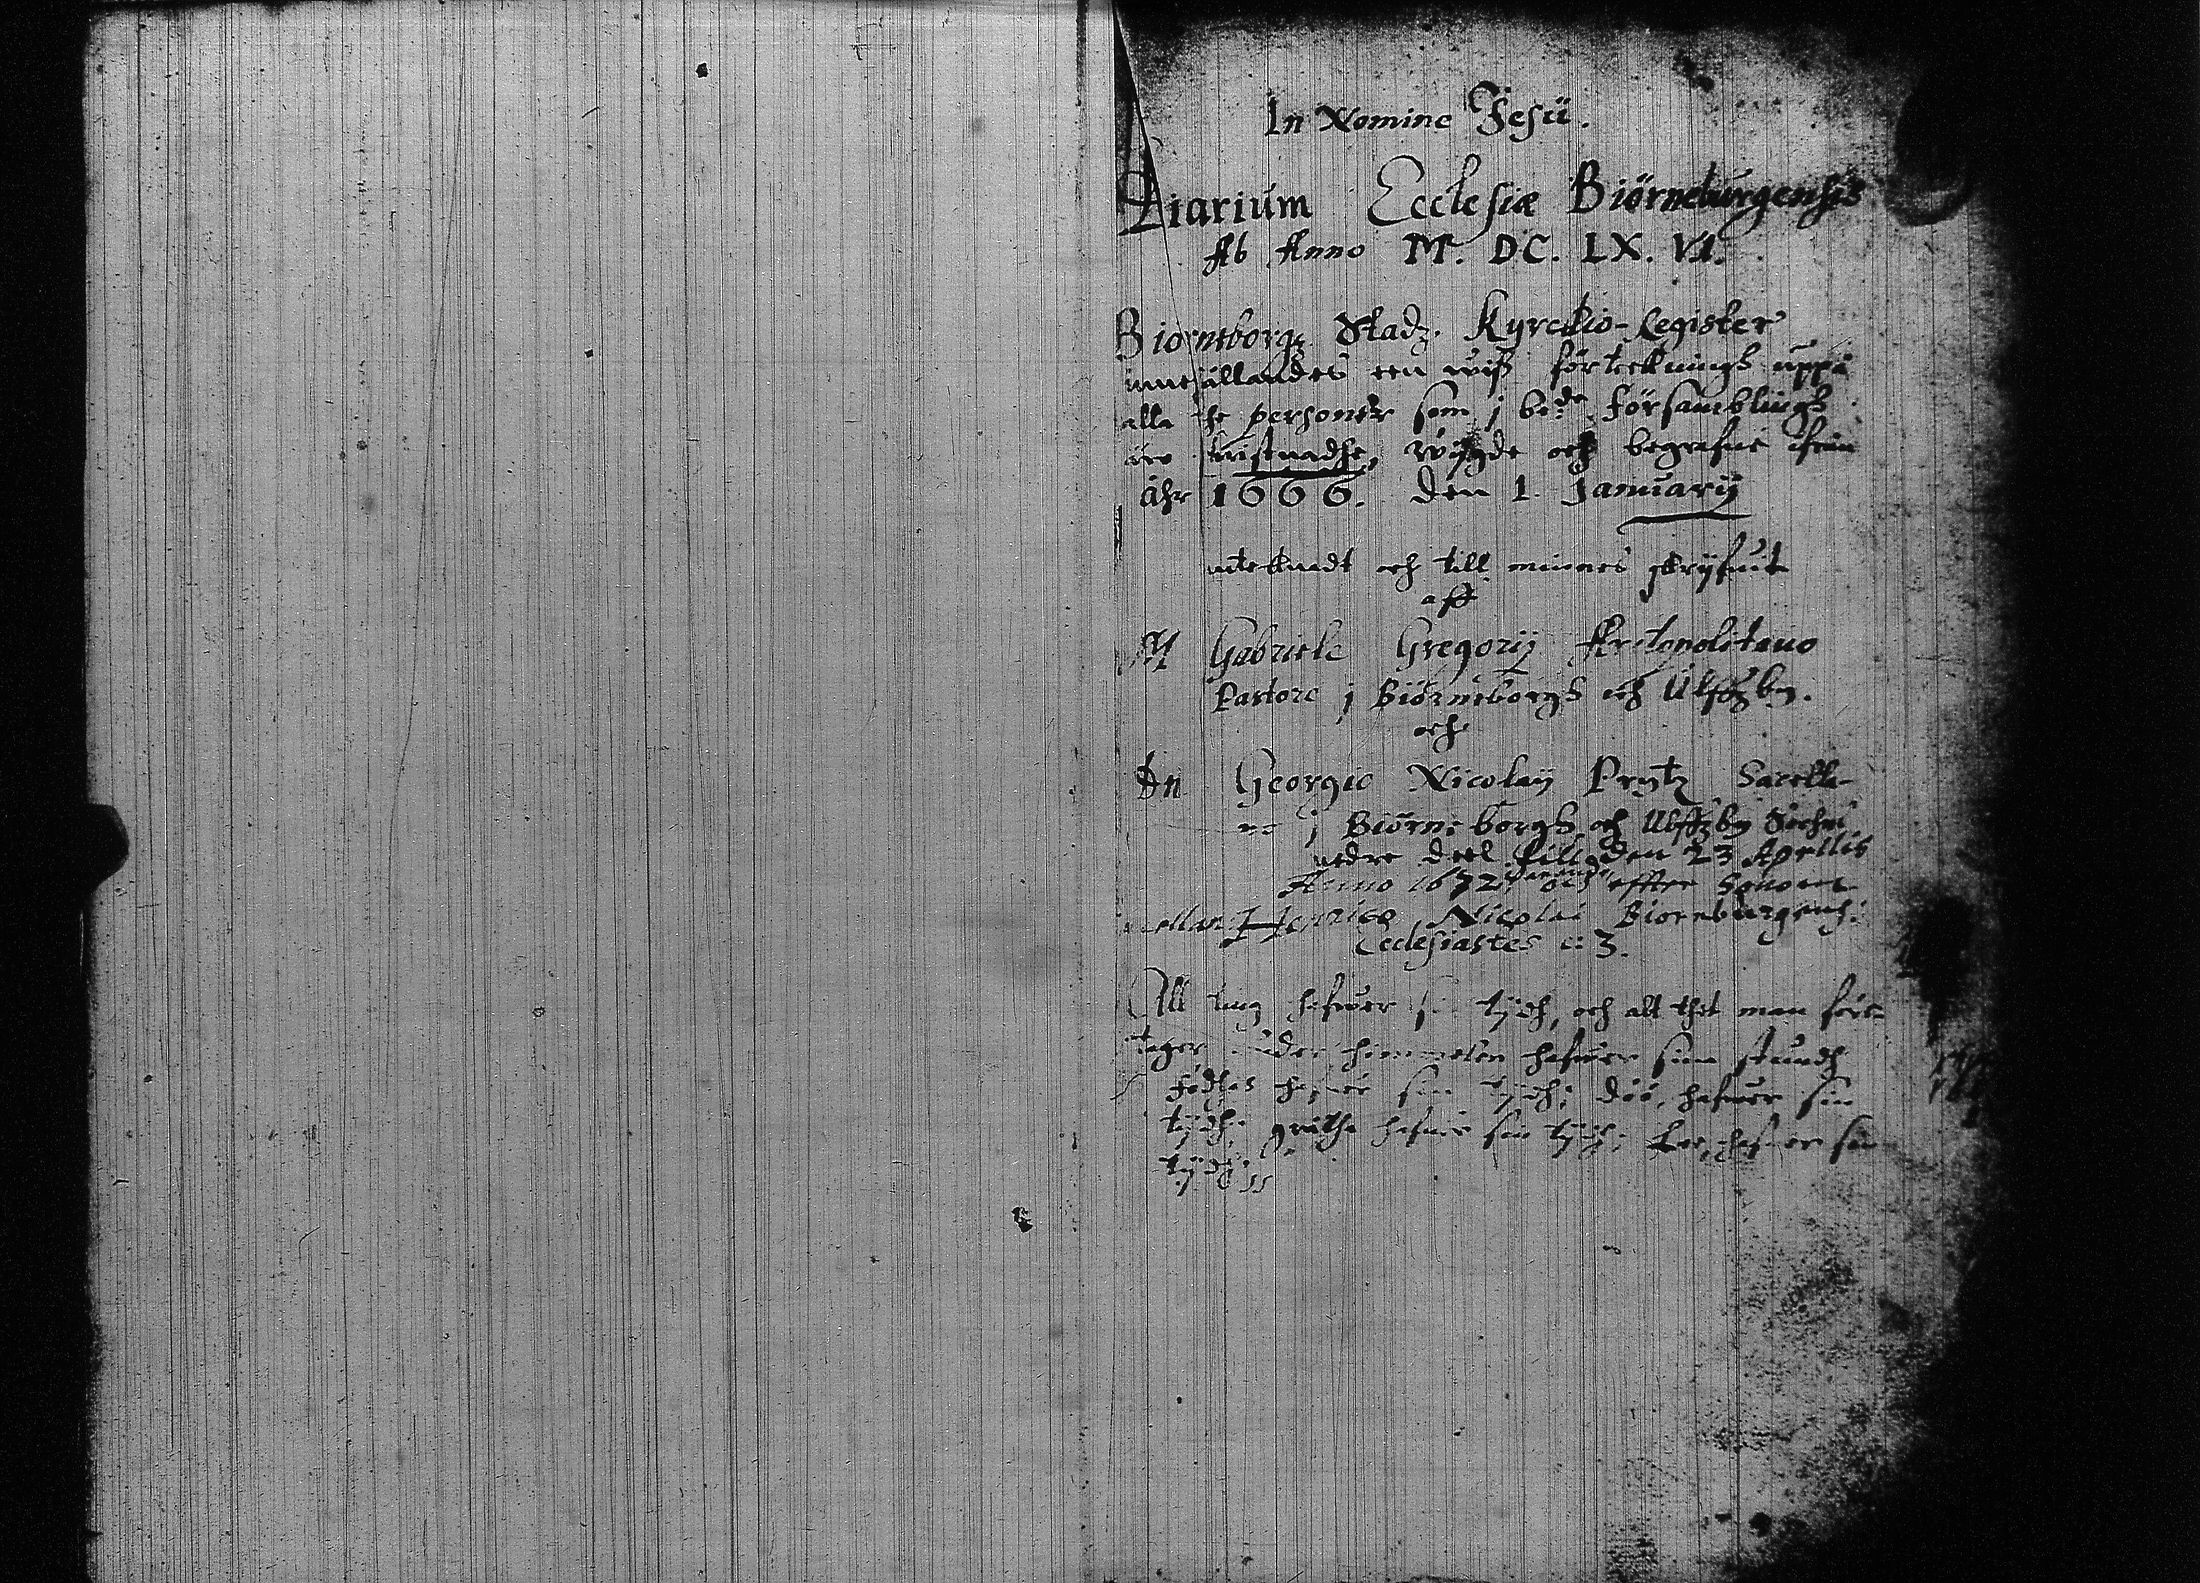 In Nomine Jesu.
Diarium Ecclesiæ Biörneburgensis
Ab Anno M. DC. LX. VI.
Biörneborgz Stadz Kyrckio-Register
innehållandes een wiss förteckningh uppå
alla the personer som j be:de församblingh
äro kristnadhe, wigde och begrafne ifrån
åhr 1666. den 1 Januarij
antecknadt och till minnes skrifwit
aff
M Gabriele Gregorij Arctopolitano
Pastore j Biörneborgh och Ulfzby.
och
Dn Georgio Nicolaij Prytz Sacella-
no j Biörneborgh och Ulffzby Sochn
nedre deel till den 23 Aprilis
Anno 1672 och effter honom
Henrico Nicolai Biorneburgens:
Ecclesiastes c: 3.
All ting hafwer sin tijdh, och alt thet man före-
tager under himmelen hafwer sina stundh
Födhas hafwer sin tijdh; döö, hafwer sin
tijdh; gråtha hafwer sin tijdh; lee, hafwer sin
tijdh;